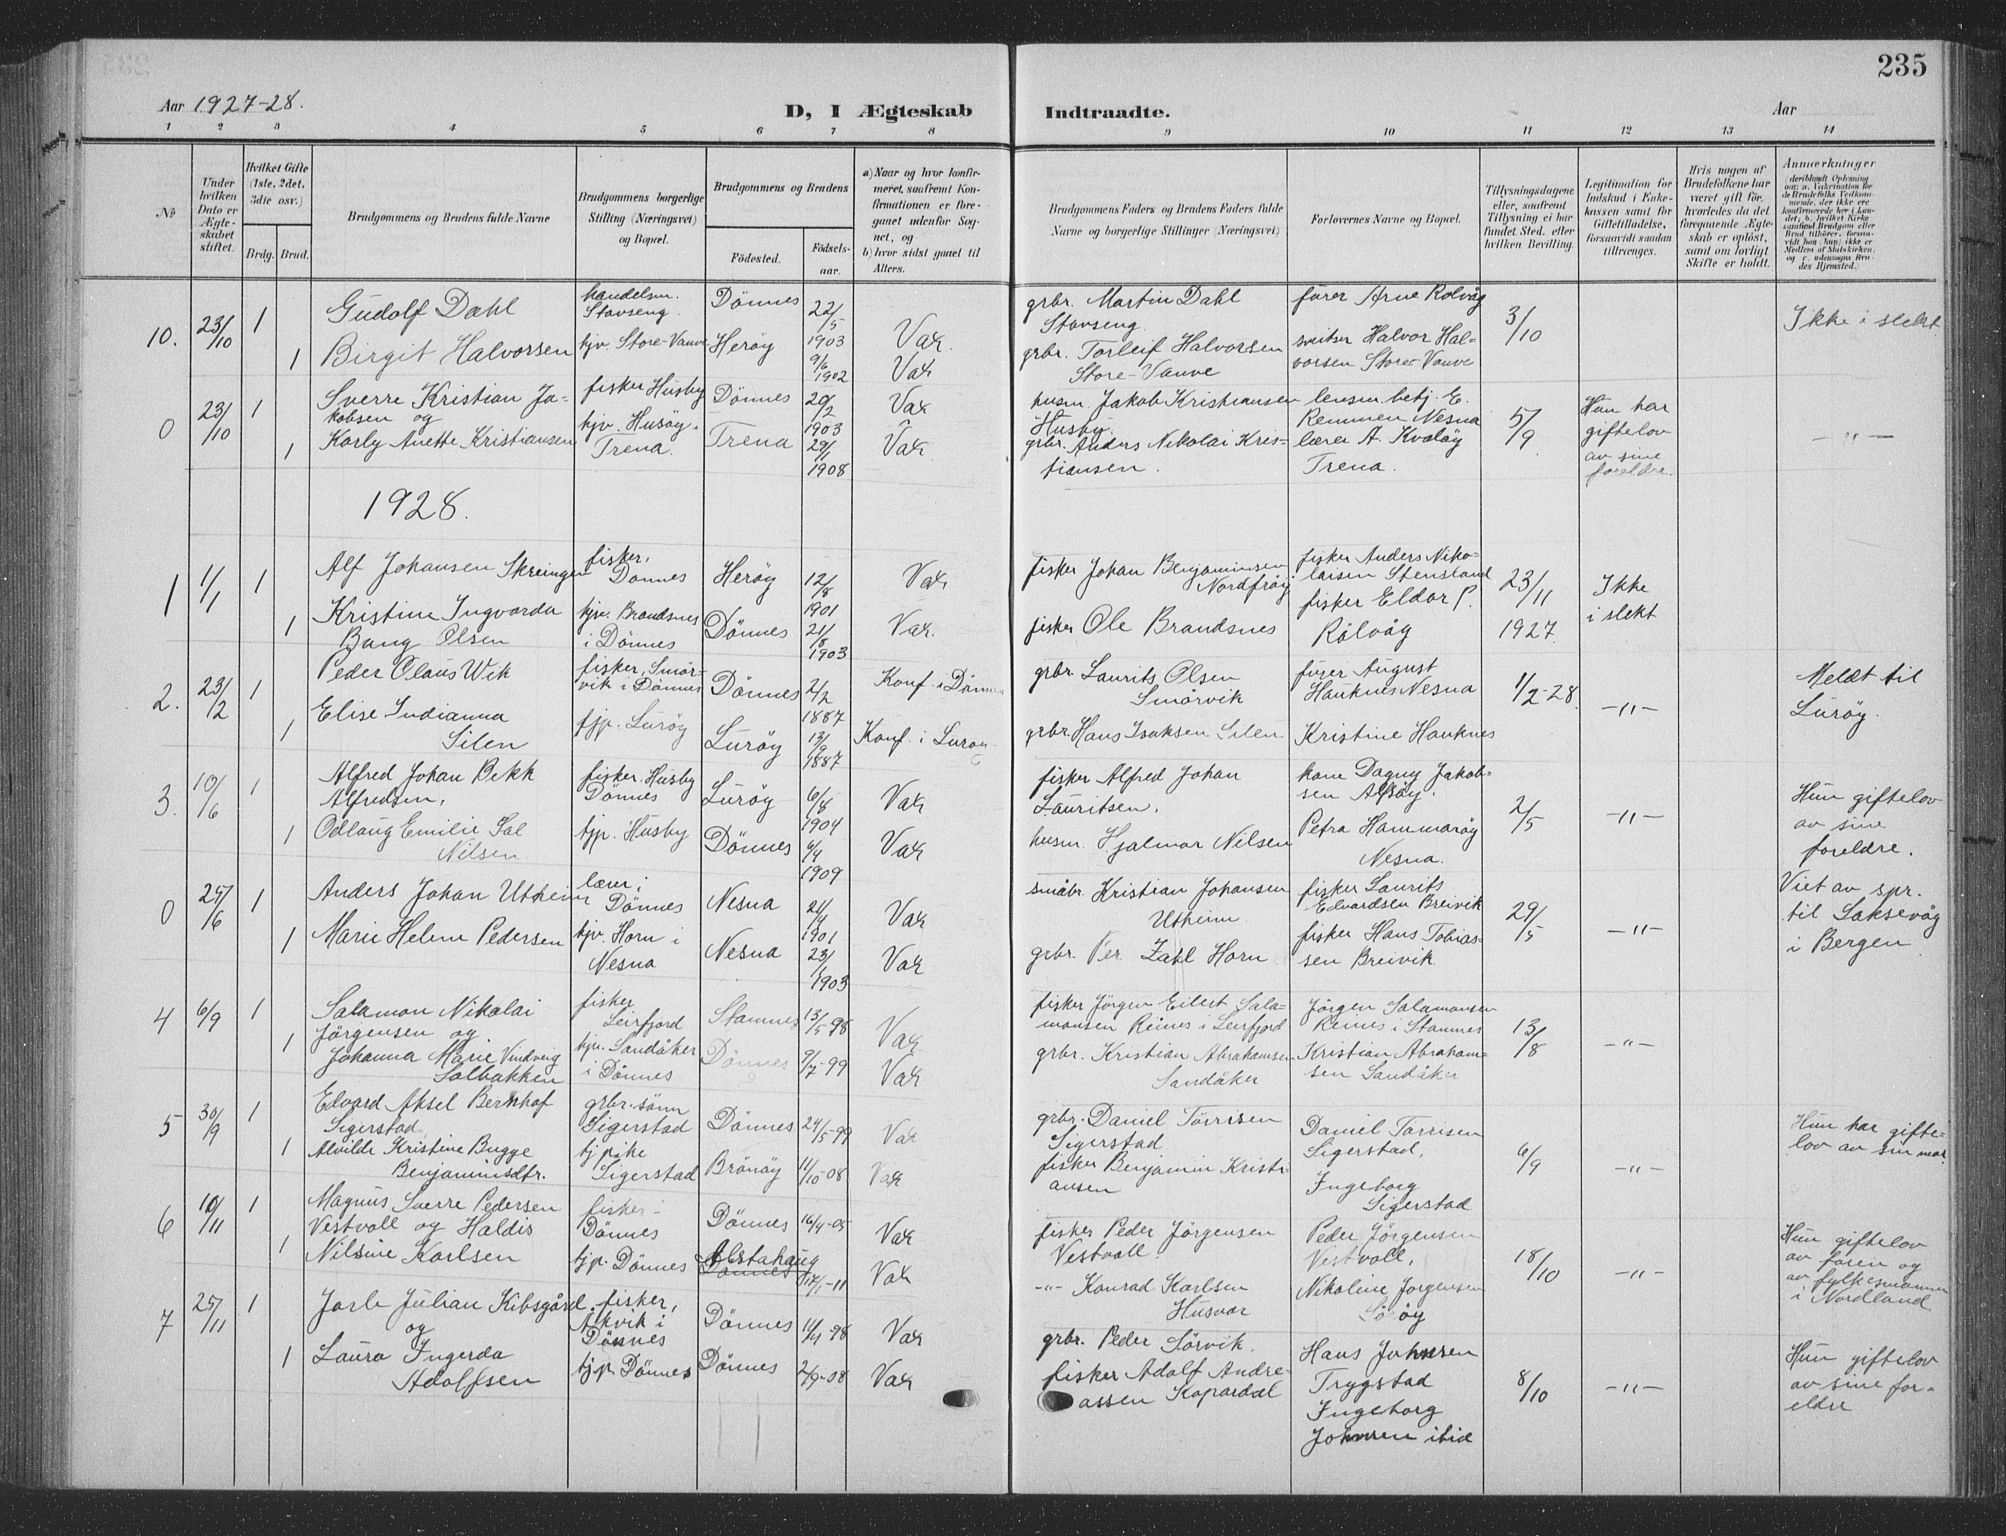 235
Aar 1927-28.
D, I Ægteskab Indtraadte.
Aar
1 2 3 4 5 6 7 8 9 10 11 12 13 14
№
Under hvilken Dato er Ægteskabet stiftet.
Hvilket Gifte (1ste, 2det, 3die osv.)
Brdg. Brud.
Brudgommens og Brudens fulde Navne
Brudgommens borgerlige Stilling (Næringsvei) og Bopæl.
Brudgommens og Brudens
Fødested.
Fødselsaar.
a) Naar og hvor konfirmeret, saafremt Konfirmationen er foregaaet udenfor Sognet, og
b) hvor sidst gaaet til Alters.
Brudgommens Faders og Brudens Faders fulde Navne og borgerlige Stillinger (Næringsvei)
Forlovernes Navne og Bopæl.
Tillysningsdagene eller, saafremt Tillysning ei har fundet Sted, efter hvilken Bevilling.
Legitimation for Indskud i Enkekassen samt for Giftetilladelse, forsaavidt saadan tiltrænges.
Hvis nogen af Brudefolkene har været gift før, hvorledes da det foregaaende Ægteskab er opløst, samt om lovligt Skifte er holdt.
Anmerkninger
10. 23/10 1 Gudolf Dahl handelsm. Stavseng. Dönnes 22/5 1903 Vax. grbr. Martin Dahl Stavseng. fører Arne Rolvåg 3/10 Ikke i slekt
1 Birgit Halvorsen tjv. Store-Vanve Heröy 9/6 1902 Vax grbr. Torleif Halvorsen Store-Vanve sveitser Halvor Halvorsen Store-Vanve
0 23/10 1 Sverre Kristian Jakobsen og fisker Husby Dönnes 20/2 1903 Vax husm. Jakob Kristiansen Husby. lensm. betj. E. Remmen Nesna 5/9 Hun har giftelov av sine foreldre. -"-
1 Karly Anette Kristiansen tjv. Husöy. Trena. Trena 29/11 1908 Vax grbr. Anders Nikolai Kristiansen. lærer A. Kvalöy Trena.
1928.
1 1/1 1 Alf Johansen Skreingen fisker, Dönnes Heröy 12/8 1901 Vax fisker Johan Benjaminsen Nordfröy fisker Anders Nikolaisen Stensland 23/11 1927 Ikke i slekt
1 Kristine Ingvarda Bang Olsen tjv. Brandsnes i Dönnes Dönnes 21/8 1903 Vax. fisker Ole Brandsnes fisker Eldor P. Rölvåg
2. 23/2 1 Peder Olaus Wik fisker, Smörvik i Dönnes Dönnes 2/2 1887 Konf. i Dönnes grbr. Laurits Olsen Smörvik fører August Hauknes Nesna 1/2-28. -"- Meldt til Luröy.
1 Elise Indianna Silen tjp. Luröy Luröy 13/9 1887 Konf. i Luröy. grbr. Hans Isaksen Silen Kristine Hauknes
3. 10/6 1 Alfred Johan Bekk Alfredsen, fisker Husby Dönnes Luröy 6/8 1904 Vax fisker Alfred Johan Lauritsen. kone Dagny Jakobsen Alsöy. 2/5 -"- Hun giftelov av sine foreldre.
1 Odlaug Emilie Sal Nilsen tjp. Husby Dönnes 6/4 1909 Vax husm. Hjalmar Nilsen Petra Hammaröy Nesna.
0 25/6 1 Anders Johan Utheim lærer i Dönnes Nesna 21/4 1901 Vax småbr. Kristian Johansen Utheim fisker Laurits Edvardsen Breivik 29/5 -"- Viet av spr. til Laksevåg i Bergen
1 Marie Helene Pedersen tjv. Horn i Nesna Nesna 23/1 1903 Vax grbr. Per Zahl Horn fisker Hans Tobiassen Breivik
4 6/9 1 Salamon Nikolai Jörgensen og fisker Leirfjord Stamnes 13/5-98 Vax fisker Jörgen Eilert Salamonsen Reines i Leirfjord Jörgen Salamonsen Reines i Stamnes 13/8 -"-
1 Johanna Marie Vindveig Solbakken tjv. Sandåker i Dönnes Dönnes 9/7-99 Vax grbr. Kristian Abrahamsen Sandåker Kristian Abrahamsen Sandåker
5 30/9 1 Edvard Aksel Bernhof Sigerstad grbr. sönn Sigerstad Dönnes 24/5-99 Vax grbr. Daniel Torrisen Sigerstad Daniel Torrisen Sigerstad, 6/9 -"- Hun har giftelov av sin mor.
1 Alvilde Kristine Bugge Benjaminsdtr. tjpike Sigerstad Brönöy 11/10-08 Vax fisker Benjamin Kristiansen Ingeborg Sigerstad
6 10/11 1 Magnus Sverre Pedersen Vestvoll og Haldis fisker Dönnes Dönnes 16/4-05 Vax fisker Peder Jörgensen Vestvoll. Peder Jörgensen Vestvoll, 18/10 -"- Hun giftelov av faren og av fylkesmannen i Nordland
1 Nilsine Karlsen tjp. Dönnes Alstahaug Dönnes 17/1-11 Vax -"- Konrad Karlsen Husvær Nikoline Jörgensen
7 25/11 1 Jarle Julian Kibsgård. og fisker, Åkvik i Dönnes Dönnes 11/11-98 Vax grbr. Peder Sörvik. Hans Johnsen Trygstad 8/10 -"- Hun giftelov av sine foreldre
1 Laura Ingerda Adolfsen tjp. Dönnes Dönnes 2/9-08 Vax fisker Adolf Andreassen Kopardal Ingeborg Johnsen ibid